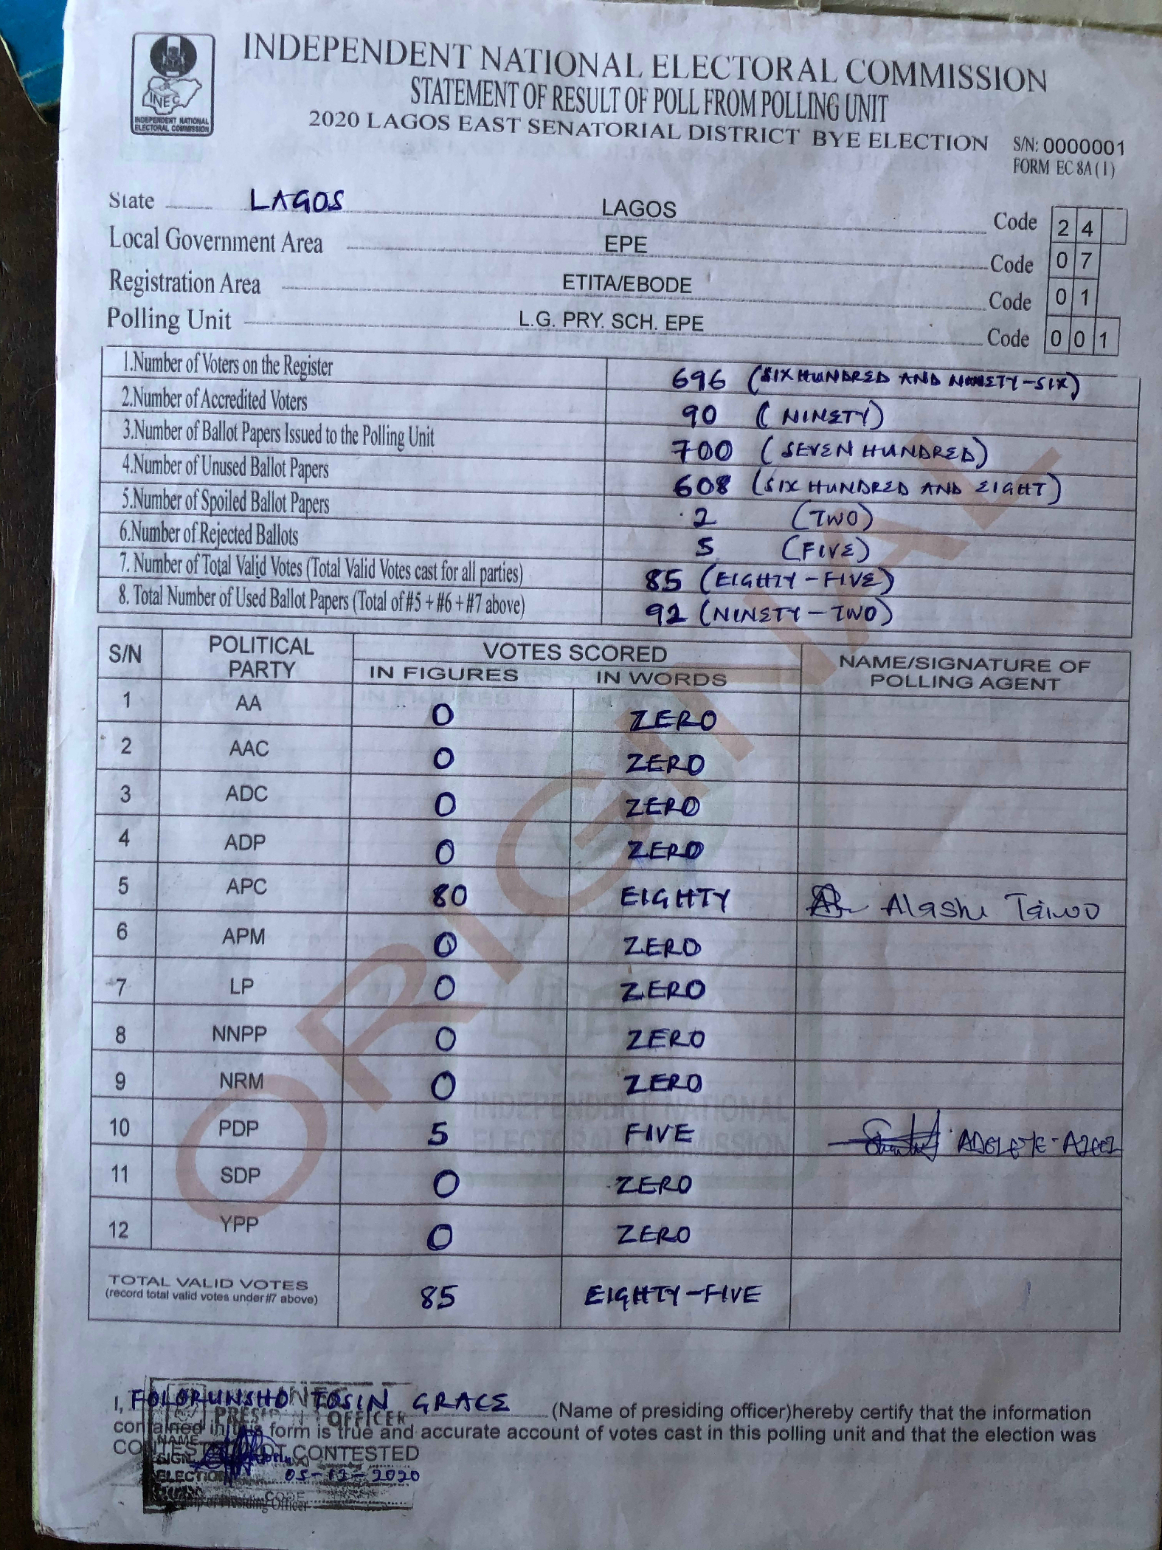 INEC
INDEPENDENT NATIONAL
ELECTORAL COMMISSION
INDEPENDENT NATIONAL ELECTORAL COMMISSION
STATEMENT OF RESULT OF POLL FROM POLLING UNIT
2020 LAGOS EAST SENATORIAL DISTRICT BYE ELECTION
S/N: 0000001
FORM EC 8A(1)
State LAGOS LAGOS Code 24
Local Government Area EPE Code 07
Registration Area ETITA/EBODE Code 01
Polling Unit L.G. PRY. SCH. EPE Code 001
1.Number of Voters on the Register 696 (SIX HUNDRED AND NINETY-SIX)
2.Number of Accredited Voters 90 (NINETY)
3.Number of Ballot Papers Issued to the Polling Unit 700 (SEVEN HUNDRED)
4.Number of Unused Ballot Papers 608 (SIX HUNDRED AND EIGHT)
5.Number of Spoiled Ballot Papers 2 (TWO)
6.Number of Rejected Ballots 5 (FIVE)
7. Number of Total Valid Votes (Total Valid Votes cast for all parties) 85 (EIGHTY-FIVE)
8. Total Number of Used Ballot Papers (Total of #5 + #6 + #7 above) 92 (NINETY-TWO)
S/N POLITICAL PARTY VOTES SCORED NAME/SIGNATURE OF POLLING AGENT
IN FIGURES IN WORDS
1 AA 0 ZERO
2 AAC 0 ZERO
3 ADC 0 ZERO
4 ADP 0 ZERO
5 APC 80 EIGHTY Alashi Taiwo
6 APM 0 ZERO
7 LP 0 ZERO
8 NNPP 0 ZERO
9 NRM 0 ZERO
10 PDP 5 FIVE
11 SDP 0 ZERO
12 YPP 0 ZERO
TOTAL VALID VOTES 85 EIGHTY-FIVE
(record total valid votes under #7 above)
ORIGINAL
I, FOLORUNSHO TOSIN GRACE (Name of presiding officer)hereby certify that the information
contained in this form is true and accurate account of votes cast in this polling unit and that the election was
CONTESTED/NOT CONTESTED
05-12-2020